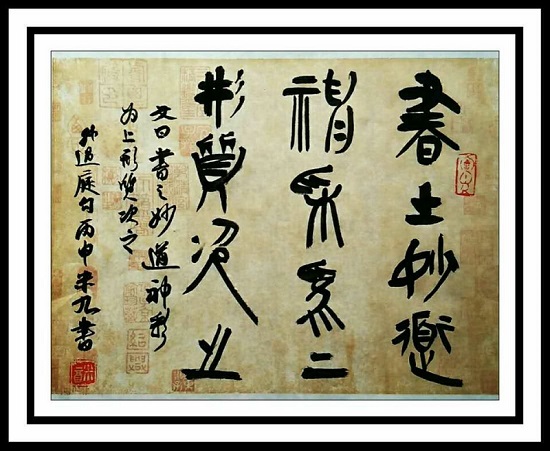 書之妙道
神采為上
形質次之
文曰書之妙道神彩
为上形质次之
孙过庭句丙申米九書